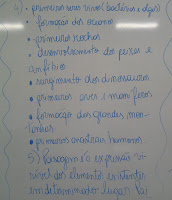 4) • primeiros seres vivos (bactérias e algas)
• formação dos oceanos
• primeira rochas
• desenvolvimento dos peixes e
anfíbio
• surgimento dos dinossauros
• primeiros aves e mamíferos
• formação das grandes mon-
tanhas
• primeiros ancestrais humanos
5) Paisagem é a expressão vi-
sível dos elementos existentes
em determinado lugar.